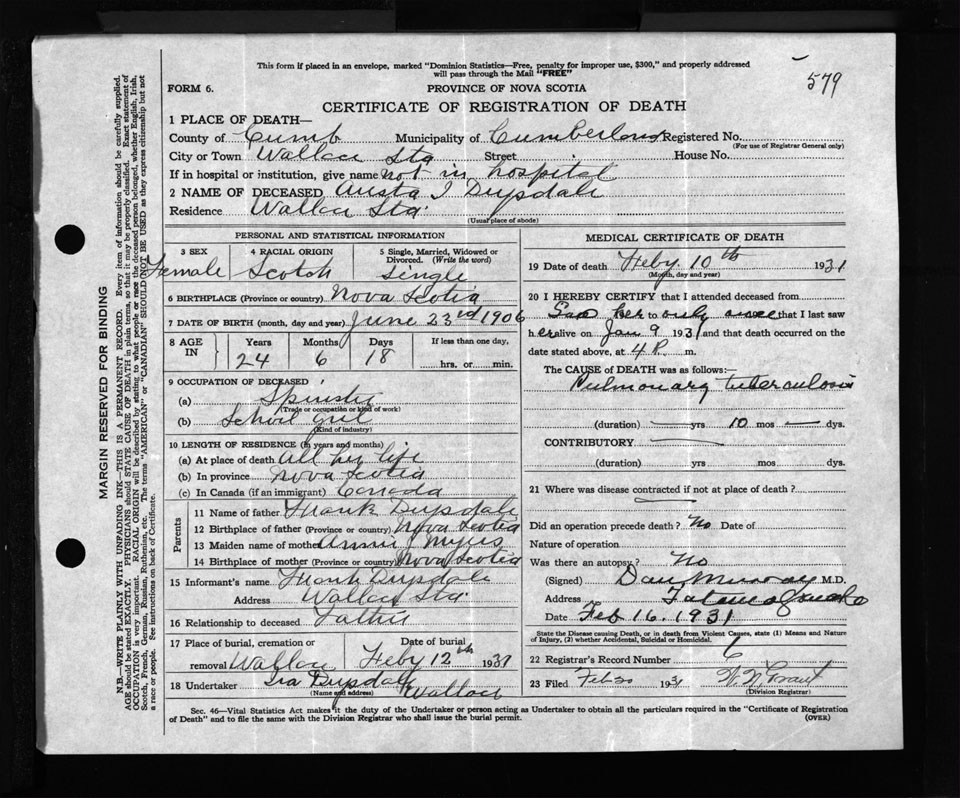 579
This form if placed in an envelope, marked "Dominion Statistics—Free, penalty for improper use, $300," and properly addressed
will pass through the Mail "FREE"
FORM 6.
PROVINCE OF NOVA SCOTIA
CERTIFICATE OF REGISTRATION OF DEATH
1 PLACE OF DEATH—
County of Cumb Municipality of Cumberland Registered No.
(For use of Registrar General only)
City or Town Wallace Sta Street House No.
If in hospital or institution, give name not in hospital
2 NAME OF DECEASED Austa I Drysdale
Residence Wallace Sta.
(Usual place of abode)
PERSONAL AND STATISTICAL INFORMATION
3 SEX 4 RACIAL ORIGIN 5 Single, Married, Widowed or
Divorced. (Write the word)
Female Scotch Single
6 BIRTHPLACE (Province or country) Nova Scotia
7 DATE OF BIRTH (month, day and year) June 23rd 1906
8 AGE IN Years Months Days If less than one day,
24 6 18 hrs. or min.
9 OCCUPATION OF DECEASED
(a) Spinster
(Trade or occupation or kind of work)
(b) School girl
(Kind of industry)
10 LENGTH OF RESIDENCE (in years and months)
(a) At place of death all her life
(b) In province Nova Scotia
(c) In Canada (if an immigrant) Canada
Parents
11 Name of father Frank Drysdale
12 Birthplace of father (Province or country) Nova Scotia
13 Maiden name of mother Annie Myers
14 Birthplace of mother (Province or country) Nova Scotia
15 Informant's name Frank Drysdale
Address Wallace Sta.
16 Relationship to deceased Father
17 Place of burial, cremation or Date of burial
removal Wallace Feby 12th 1931
18 Undertaker Ira Drysdale Wallace
(Name and address)
MEDICAL CERTIFICATE OF DEATH
19 Date of death Feby 10th 1931
(Month, day and year)
20 I HEREBY CERTIFY that I attended deceased from
Saw her to only once that I last saw
her alive on Jan 9 1931 and that death occurred on the
date stated above, at 4 P. m.
The CAUSE of DEATH was as follows:—
Pulmonary tuberculosis
(duration) — yrs 10 mos — dys.
CONTRIBUTORY
(duration) yrs mos dys.
21 Where was disease contracted if not at place of death?
Did an operation precede death? No Date of
Nature of operation
Was there an autopsy? No
(Signed) Dan Murray M.D.
Address
Date Feb 16. 1931
State the Disease causing Death, or in death from Violent Causes, state (1) Means and Nature
of Injury, (2) whether Accidental, Suicidal or Homicidal.
22 Registrar's Record Number 6
23 Filed Feb 20 1931
(Division Registrar)
Sec. 46—Vital Statistics Act makes it the duty of the Undertaker or person acting as Undertaker to obtain all the particulars required in the "Certificate of Registration
of Death" and to file the same with the Division Registrar who shall issue the burial permit.
(OVER)
MARGIN RESERVED FOR BINDING
N.B.—WRITE PLAINLY WITH UNFADING INK—THIS IS A PERMANENT RECORD. Every item of information should be carefully supplied.
AGE should be stated EXACTLY. PHYSICIANS should STATE CAUSE OF DEATH in plain terms, so that it may be properly classified. Exact statement of
OCCUPATION is very important. RACIAL ORIGIN will be described by stating to what people or race the deceased person belonged, whether English, Irish,
Scotch, French, German, Russian, Ruthenian, etc. The terms "AMERICAN" or "CANADIAN" SHOULD NOT BE USED as they express citizenship but not
a race or people. See instructions on back of Certificate.